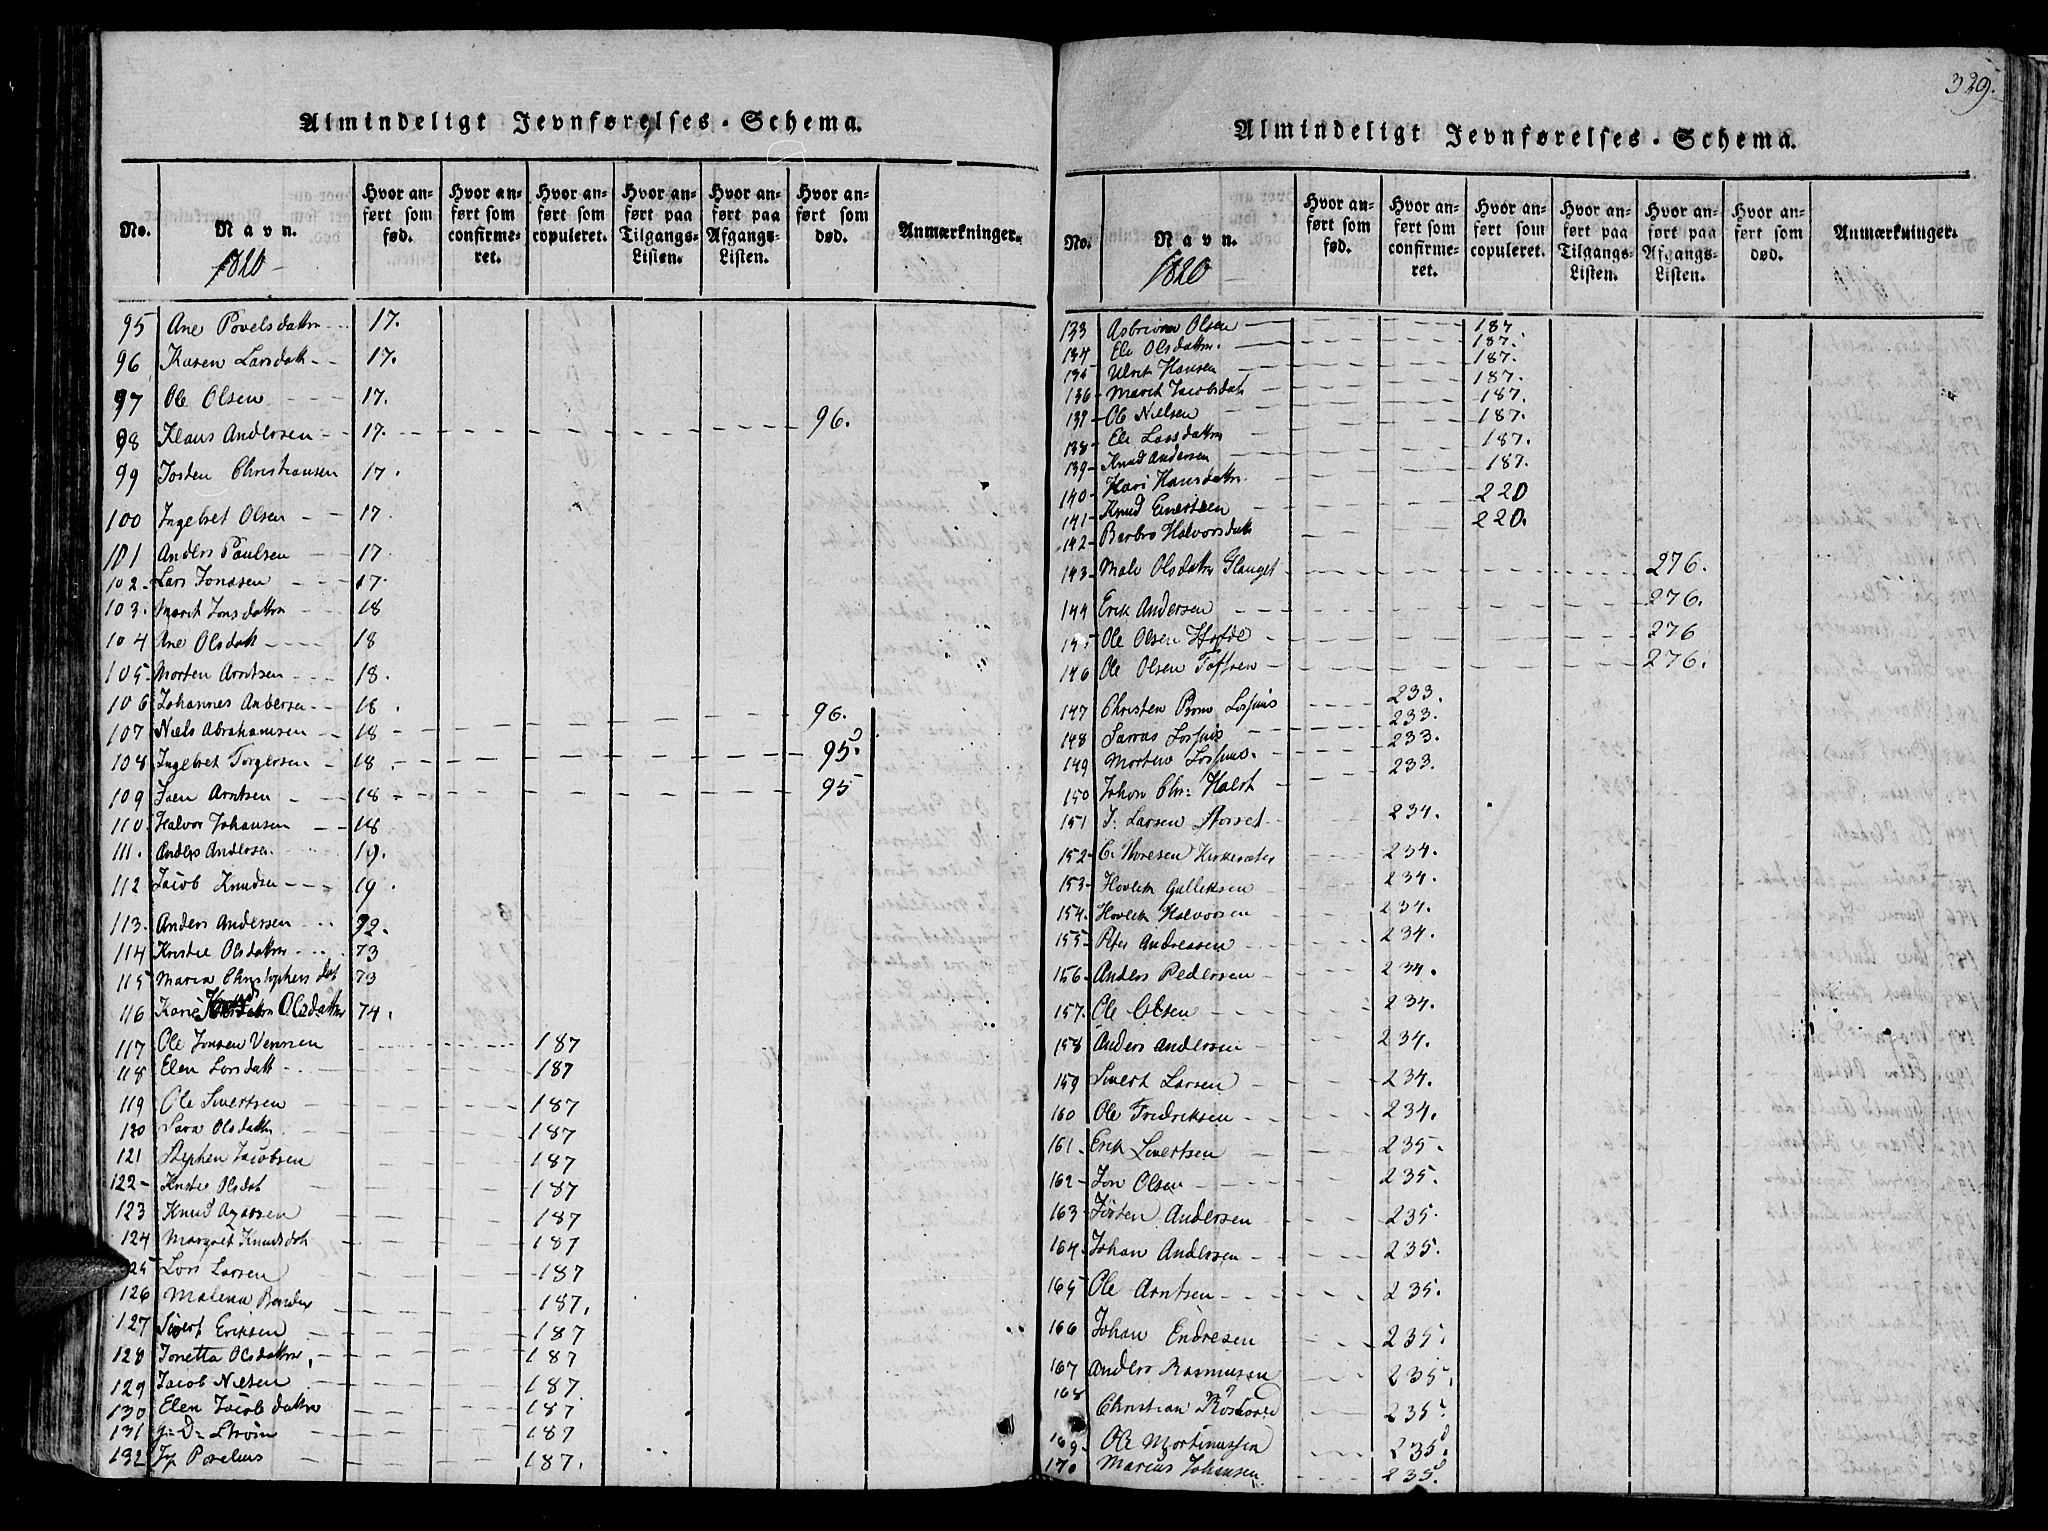 Almindeligt Jevnførelses-Schema.
No. Navn. Hvor anført som fød. Hvor anført som confirmeret. Hvor anført som copuleret. Hvor anført paa Tilgangs-Listen. Hvor anført paa Afgangs-Listen. Hvor anført som død. Anmærkninger.
1820
95 Ane Povelsdattr 17.
96 Karen Larsdatt 17.
97 Ole Olsen 17.
98 Klaus Andersen 17. 96.
99 Josten Christiansen 17.
100 Ingebret Olsen 17.
101 Anders Paulsen 17
102 Lars Jonasen 17.
103. Marit Jonsdattr 18
104 Ane Olsdatt 18
105 Morten Arntsen 18.
106 Johannes Andersen 18.
107 Niels Abrahamsen 18 96.
108 Ingebret Torgersen 18. 95.
109 Joen Arntsen 18 95
110. Halvor Johansen 18
111. Anders Andersen 19.
112 Jacob Knudsen 19.
113. Anders Andersen 92.
114 Kristie Olsdattr 73
115 Maria Christophersdat 73
116 Karie Olsdattr 74.
117 Ole Jonsen Vennen 187
118 Elen Larsdatt 187
119 Ole Sivertsen 187
120 Sara Olsdattr 187
121 Stephen Jacobsen 187
122 Kristie Olsdat 187
123 Knud Agarsen 187
124 Margret Knudsdat 187
125 Lars Larsen 187
126 Malena 187.
127 Sivert Eriksen 187
128 Jonetta Olsdattr 187
129 Jacob Nilsen 187
130 Elen Jacobsdattr 187
131 G: D: Strøm 187
132 187.
329.
Almindeligt Jevnførelses-Schema.
No. Navn. Hvor anført som fød. Hvor anført som confirmeret. Hvor anført som copuleret. Hvor anført paa Tilgangs-Listen. Hvor anført paa Afgangs-Listen. Hvor anført som død. Anmærkninger.
1820
133 Asbriøn Olsen 187.
134 Eli Olsdattr. 187.
135 Ulrik Hansen 187.
136 Marit Jacobsdat 187.
137 Ole Nielsen 187.
138 Eli Larsdattr 187.
139 Knud Andersen 187.
140 Kari Hansdattr 187.
141 Knud Einertsen 220
142 Barbro Halvorsdatt 220.
143 Mali Olsdattr Slanget 276.
144 Erik Andersen 276.
145 Ole Olsen Hofde 276
146 Ole Olsen Toftsen 276.
147 Christen Brun Lossius 233.
148 Sarras Lossius 233.
149 Morten Lossius. 233.
150 Johan Chr: Holst 233.
151 J. Larsen Storset 234.
152 C. Thoresen Kirkesæter 234.
153 Hovlek Gulliksen 234.
154. Hovlek Halvorsen 234.
155 Peter Andreasen 234.
156 Anders Pedersen 234.
157. Ole Olsen 234.
158 Anders Andersen 234.
159 Sivert Larsen 234.
160 Ole Fredriksen 234.
161. Erik Sivertsen 235
162 Jon Olsen 235.
163 Josten Andersen 235.
164 Johan Andersen 235.
165 Ole Arntsen 235.
166 Johan Endresen 235.
167 Anders Rasmussen 235.
168 Christian 235.
169 Ole Mortinussen 235.
170 Marius Johansen 235.